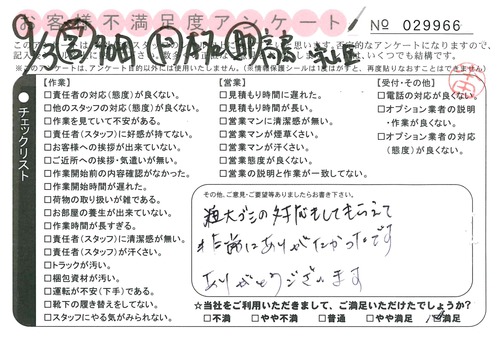 お客様不満足度アンケート
№ 029966
※このアンケートは、アンケート目的以外には使用いたしません。(※情報保護シールは1度はがすと、再度貼りなおすことはできません)
チェックリスト
【作業】
□責任者の対応(態度)が良くない。
□他のスタッフの対応(態度)が良くない。
□作業を見ていて不安がある。
□責任者(スタッフ)に好感が持てない。
□お客様への挨拶が出来ていない。
□ご近所への挨拶・気遣いが無い。
□作業開始前の内容確認がなかった。
□作業開始時間が遅れた。
□荷物の取り扱いが雑である。
□お部屋の養生が出来ていない。
□作業時間が長すぎる。
□責任者(スタッフ)に清潔感が無い。
□責任者(スタッフ)が汗くさい。
□トラックが汚い。
□梱包資材が汚い。
□運転が不安(下手)である。
□靴下の履き替えをしてない。
□スタッフにやる気がみられない。
【営業】
□見積もり時間に遅れた。
□見積もり時間が長い。
□営業マンに清潔感が無い。
□営業マンが煙草くさい。
□営業マンが汗くさい。
□営業態度が良くない。
□営業の説明と作業が一致してない。
【受付・その他】
□電話の対応が良くない。
□オプション業者の説明
・作業が良くない。
□オプション業者の対応
(態度)が良くない。
その他、ご意見・ご要望等ありましたらお書き下さい。
粗大ゴミの対応もしてもらえて
非常にありがたかったです
ありがとうございます
☆当社をご利用いただきまして、ご満足いただけたでしょうか?
□不満 □やや不満 □普通 □やや満足 □満足